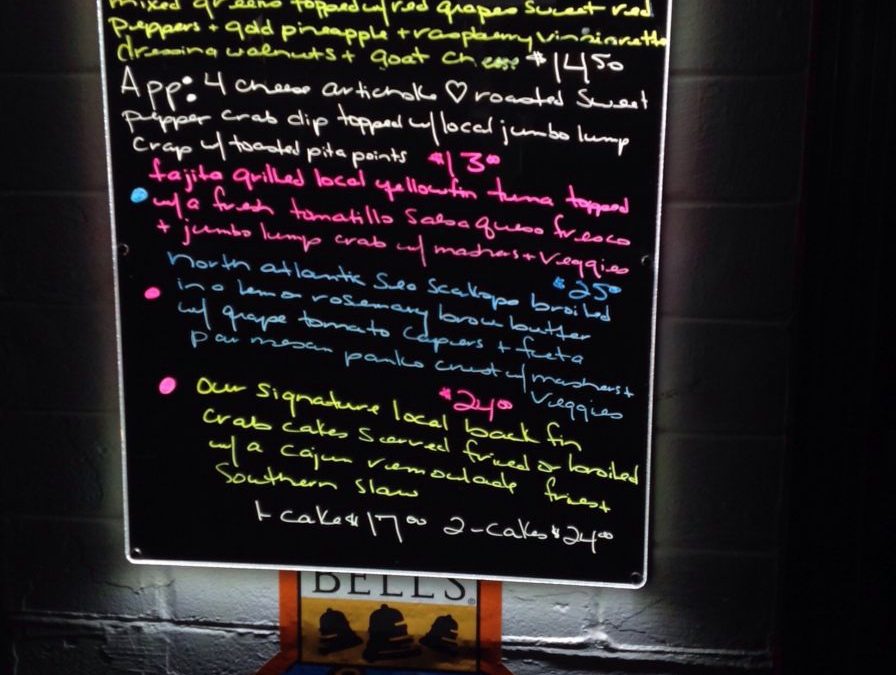 mixed greens topped w/ red grapes sweet red
peppers + gold pineapple + raspberry vinninrette
dressing walnuts + goat cheese $14.50
App: 4 cheese artichoke ♡ roasted sweet
pepper crab dip topped w/ local jumbo lump
crap w/ toasted pita points $13.00
fajita grilled local yellowfin tuna topped
w/ a fresh tomatillo salsa queso fresco
+ jumbo lump crab w/ mashers + veggies
$25.00
north atlantic sea scallops broiled
in a lemon rosemary brown butter
w/ grape tomato capers + feta
parmesan panko crust w/ mashers +
veggies
$24.00
our signature local back fin
crab cakes served fried or broiled
w/ a cajun remoulade fries +
Southern slaw
1-cake $17.00 2-cakes $24.00
BELL'S